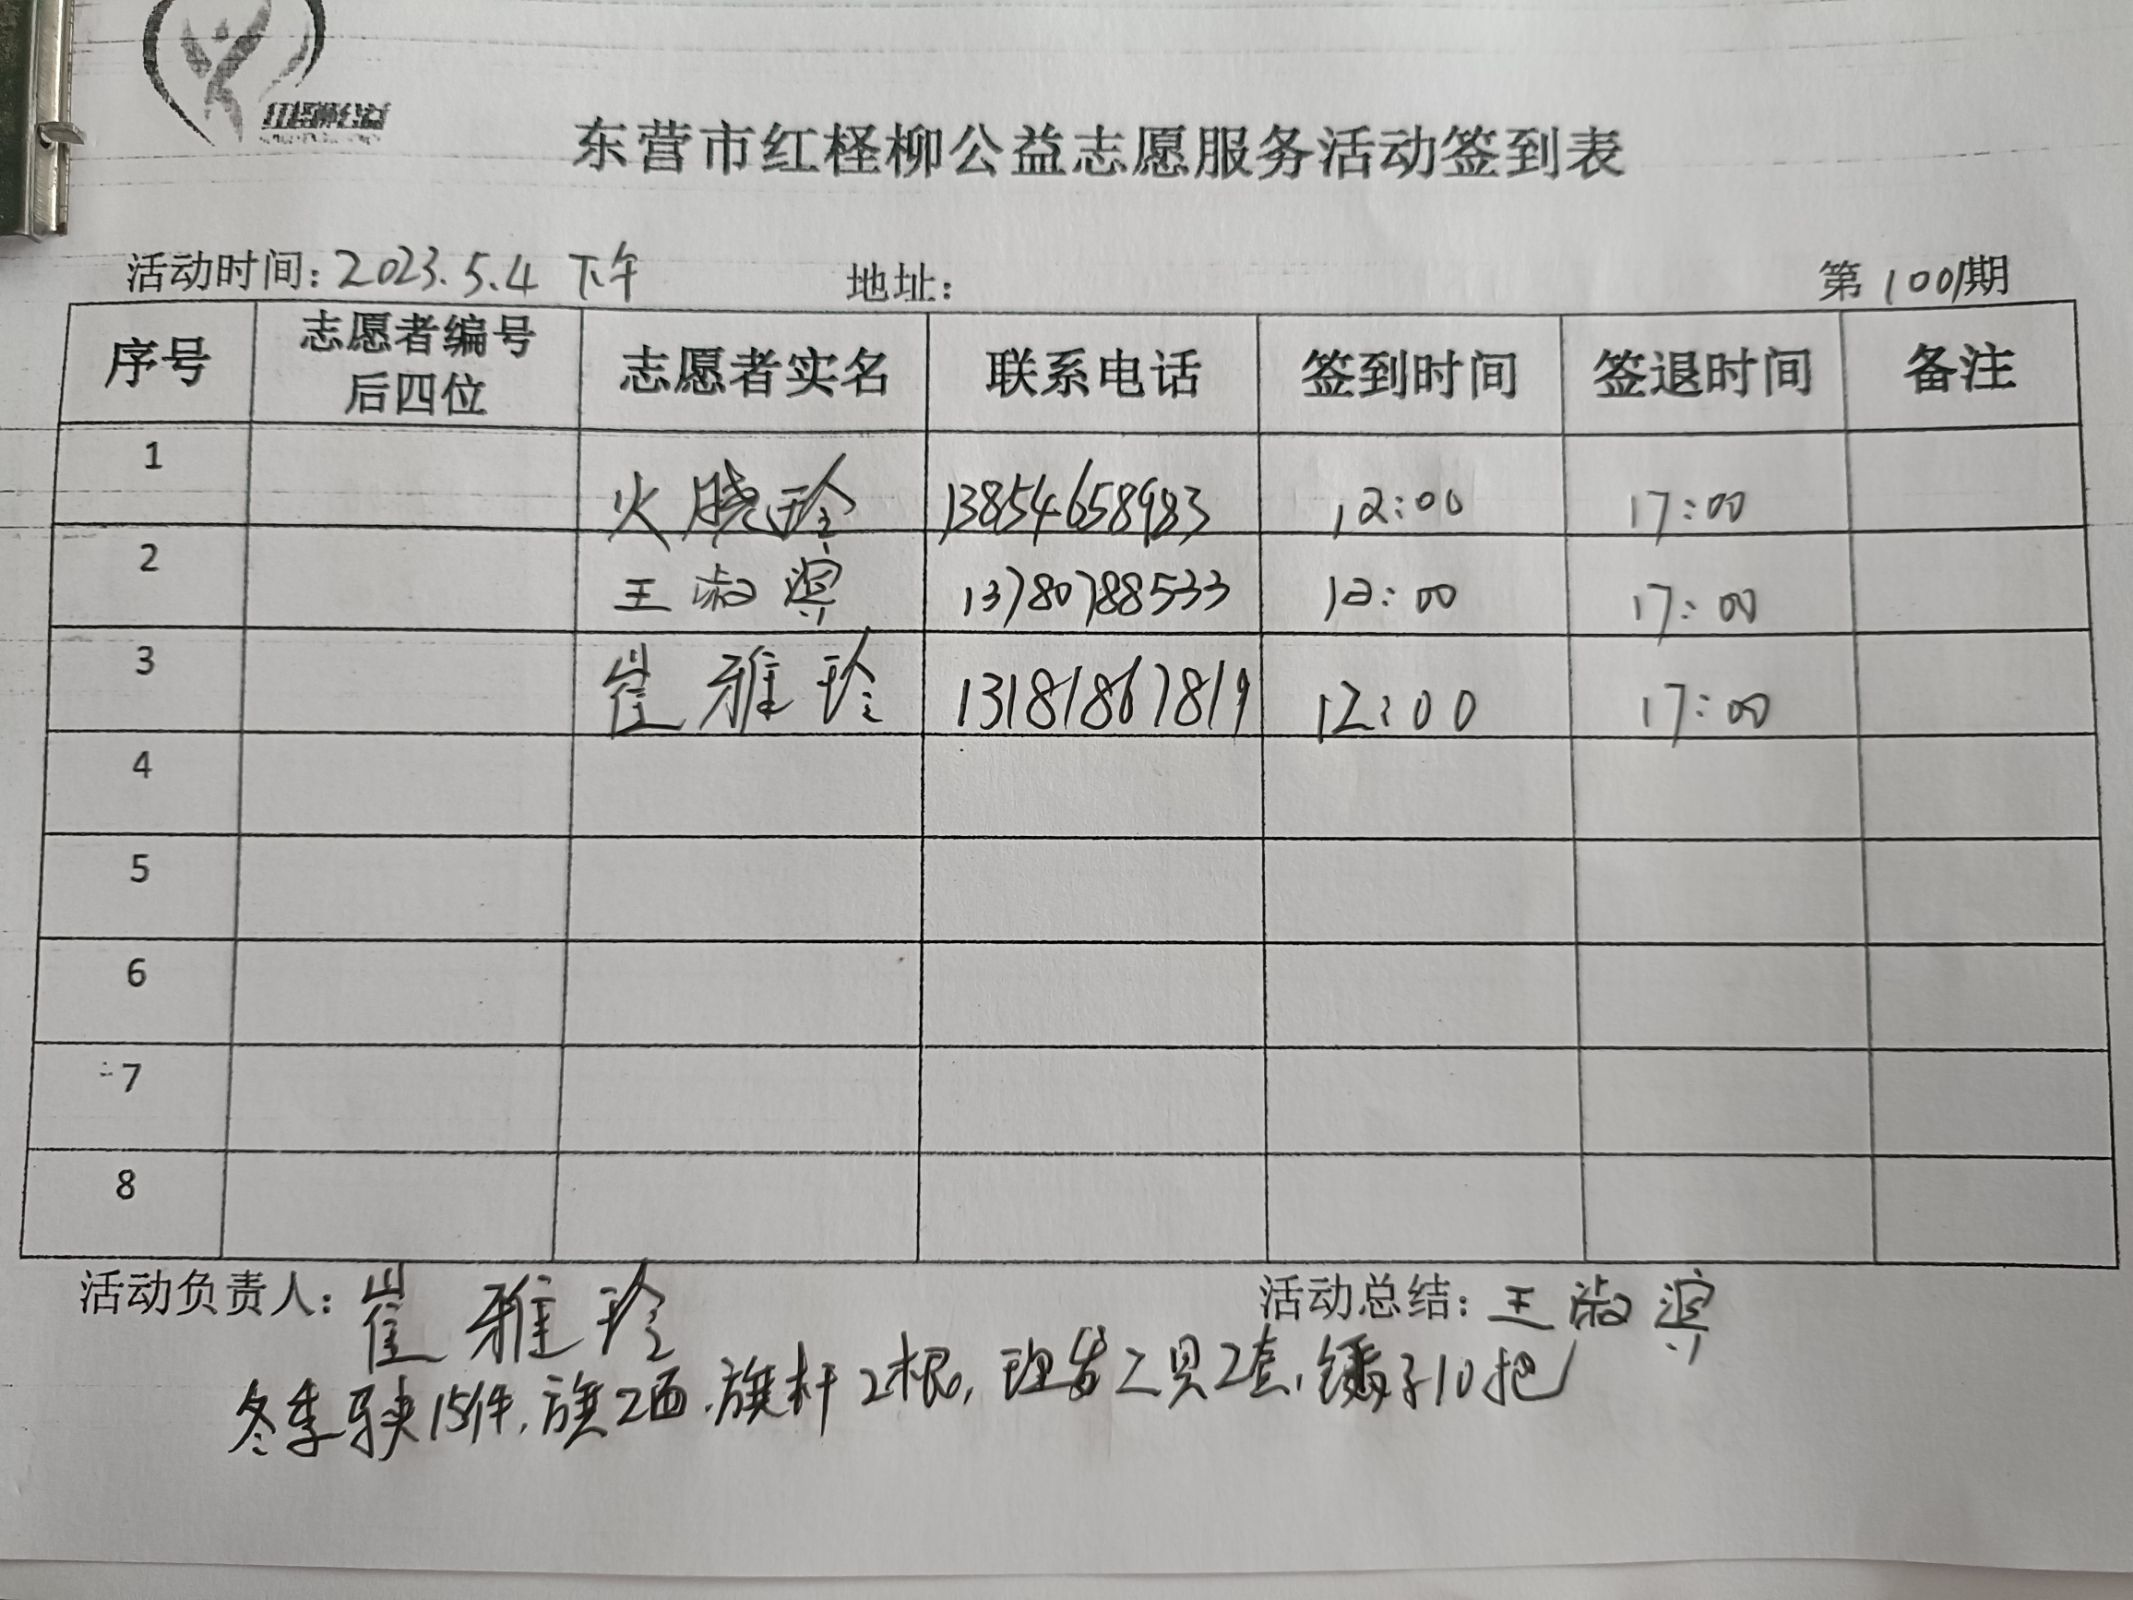 红柽柳公益
东营市红柽柳公益志愿服务活动签到表
活动时间：2023.5.4 下午 地址： 第1001期
序号 志愿者编号后四位 志愿者实名 联系电话 签到时间 签退时间 备注
1 火晓玲 13854658983 12:00 17:00
2 王淑滨 13780788533 12:00 17:00
3 崔雅玲 13181867819 12:00 17:00
4
5
6
7
8
活动负责人：崔雅玲 活动总结：王淑滨
冬季马夹15件，旗2面，旗杆2根，理发工具2套，镊子10把